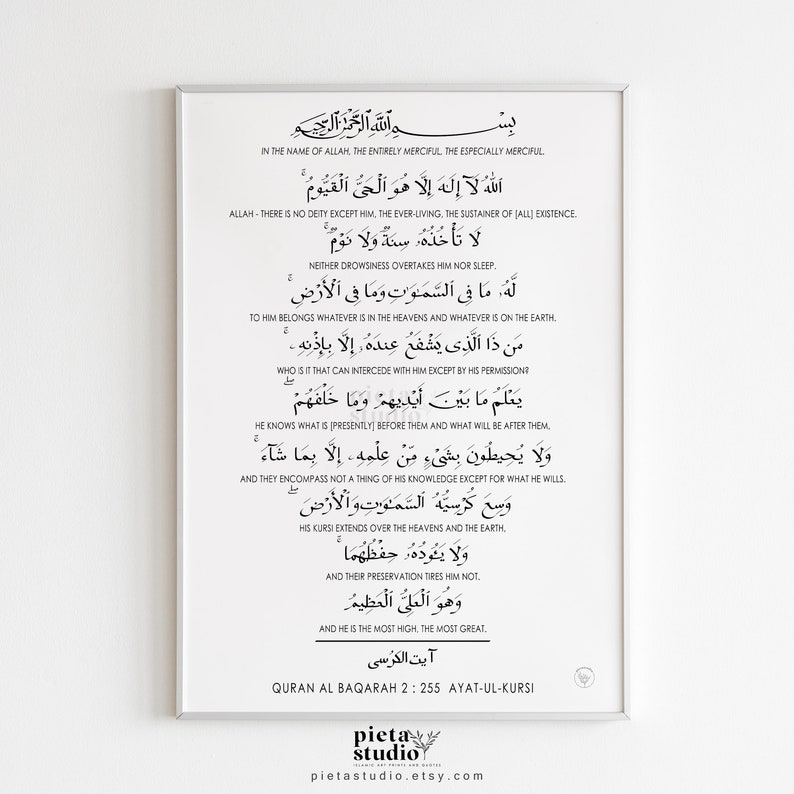 بِسْمِ اللَّهِ الرَّحْمَٰنِ الرَّحِيمِ
IN THE NAME OF ALLAH, THE ENTIRELY MERCIFUL, THE ESPECIALLY MERCIFUL.
اللَّهُ لَآ إِلَٰهَ إِلَّا هُوَ الْحَىُّ الْقَيُّومُ ۚ
ALLAH - THERE IS NO DEITY EXCEPT HIM, THE EVER-LIVING, THE SUSTAINER OF [ALL] EXISTENCE.
لَا تَأْخُذُهُۥ سِنَةٌ وَلَا نَوْمٌ ۚ
NEITHER DROWSINESS OVERTAKES HIM NOR SLEEP.
لَّهُۥ مَا فِى السَّمَٰوَٰتِ وَمَا فِى الْأَرْضِ ۗ
TO HIM BELONGS WHATEVER IS IN THE HEAVENS AND WHATEVER IS ON THE EARTH.
مَن ذَا الَّذِى يَشْفَعُ عِندَهُۥٓ إِلَّا بِإِذْنِهِۦ ۚ
WHO IS IT THAT CAN INTERCEDE WITH HIM EXCEPT BY HIS PERMISSION?
يَعْلَمُ مَا بَيْنَ أَيْدِيهِمْ وَمَا خَلْفَهُمْ ۖ
HE KNOWS WHAT IS [PRESENTLY] BEFORE THEM AND WHAT WILL BE AFTER THEM,
وَلَا يُحِيطُونَ بِشَىْءٍ مِّنْ عِلْمِهِۦٓ إِلَّا بِمَا شَآءَ ۚ
AND THEY ENCOMPASS NOT A THING OF HIS KNOWLEDGE EXCEPT FOR WHAT HE WILLS.
وَسِعَ كُرْسِيُّهُ السَّمَٰوَٰتِ وَالْأَرْضَ ۖ
HIS KURSI EXTENDS OVER THE HEAVENS AND THE EARTH,
وَلَا يَـُٔودُهُۥ حِفْظُهُمَا ۚ
AND THEIR PRESERVATION TIRES HIM NOT.
وَهُوَ الْعَلِىُّ الْعَظِيمُ
AND HE IS THE MOST HIGH, THE MOST GREAT.
آیت الکرسی
QURAN AL BAQARAH 2 : 255 AYAT-UL-KURSI
pieta
studio
pieta
studio
ISLAMIC ART PRINTS AND QUOTES
pietastudio.etsy.com